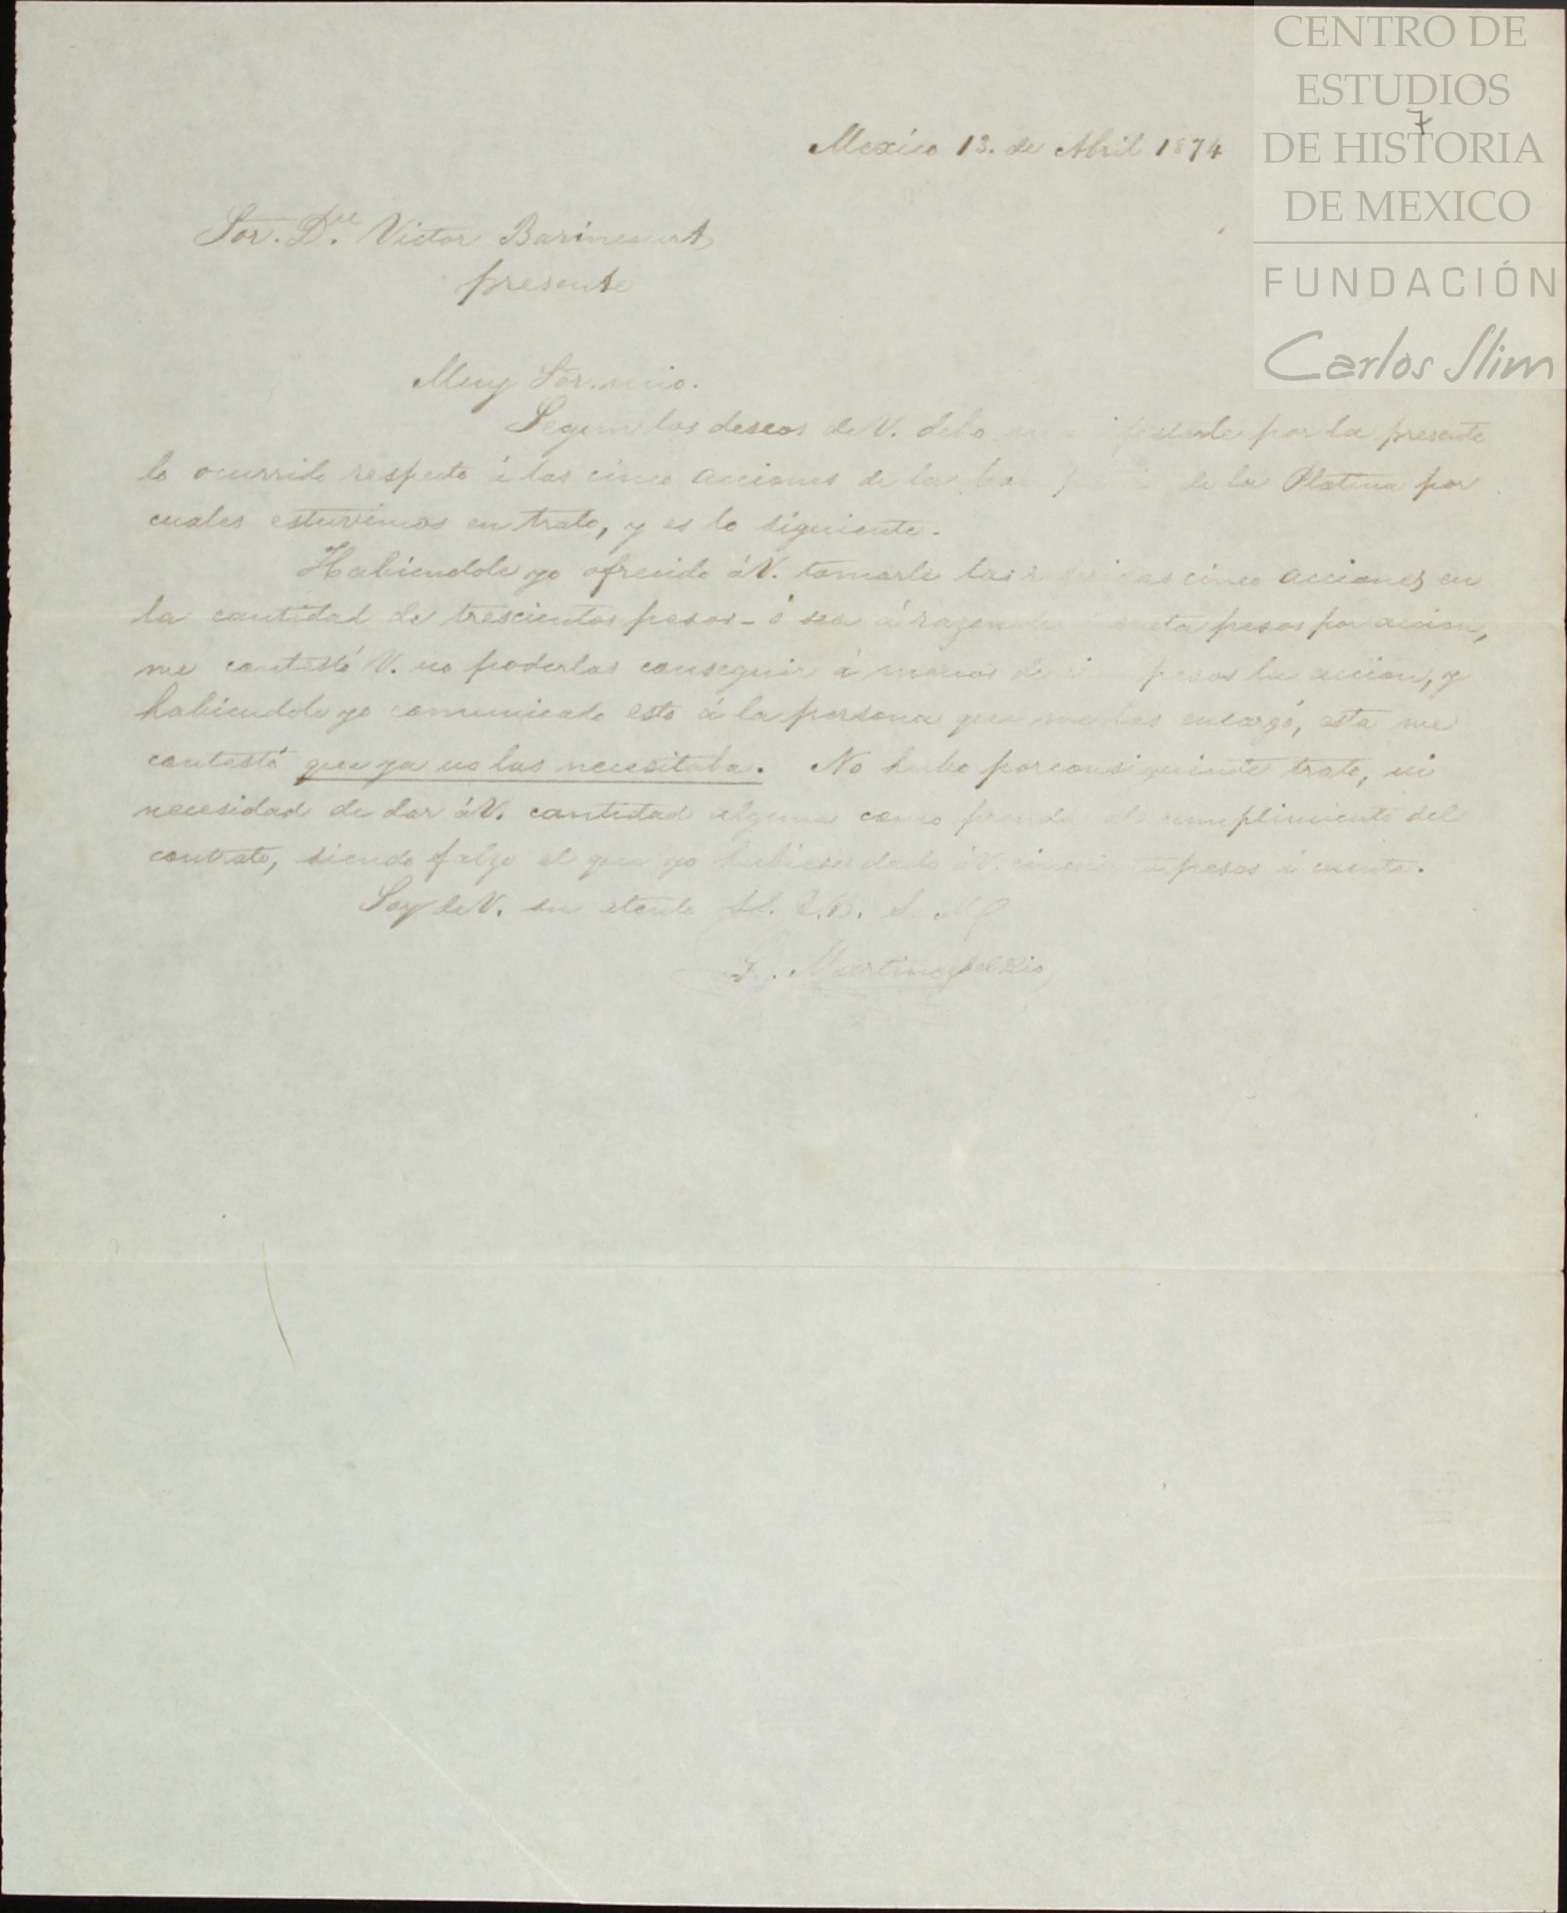 CENTRO DE
ESTUDIOS
DE HISTORIA
DE MEXICO
FUNDACIÓN
Carlos Slim
7
Mexico 13. de Abril 1874
Sor. Dn. Victor Barincourt
presente
Muy Sor. mio.
Segun los deseos de V. debo manifestarle por la presente
lo ocurrido respecto á las cinco acciones de la de la Platina por
cuales estuvimos en trato, y es lo siguiente.
Habiendole yo ofrecido á V. tomarle las cinco acciones en
la cantidad de trescientos pesos - ó sea á razon de pesos por accion,
me contestó V. no poderlas conseguir á menos de pesos la accion, y
habiendole yo comunicado esto á la persona que me las encargó, esta me
contestó que ya no las necesitaba. No hubo porconsiguiente trato, ni
necesidad de dar á V. cantidad alguna como prenda al cumplimiento del
contrato, siendo falzo el que yo hubiese dado á V. pesos á cuenta.
Soy de V. su atento
Martinez del Rio